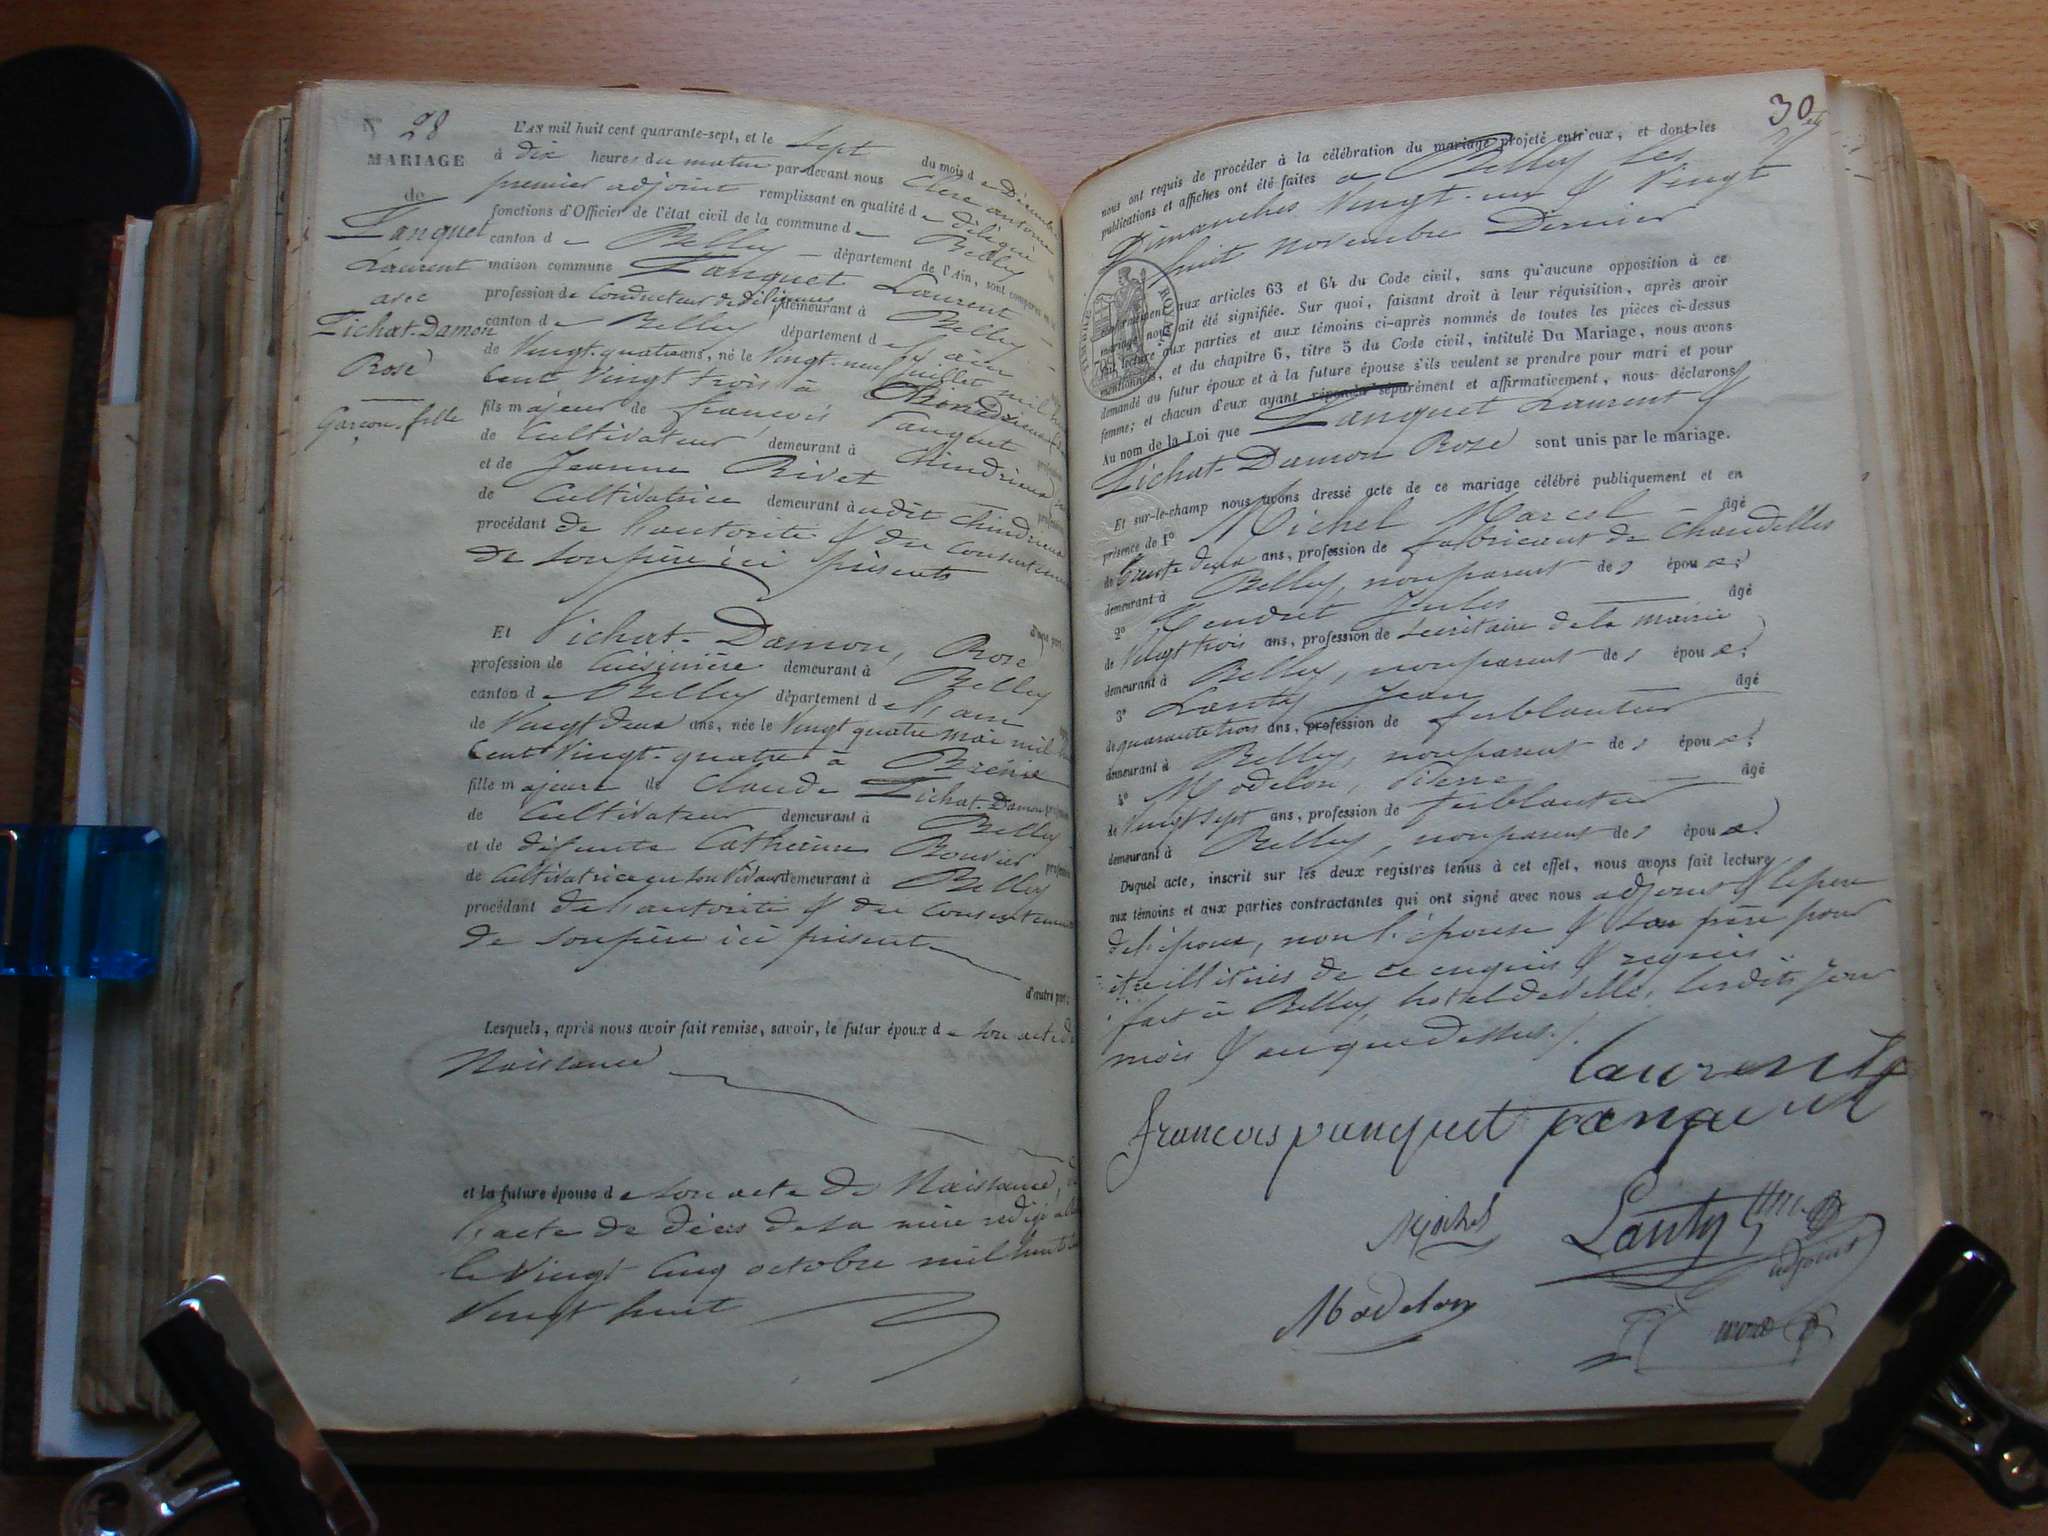 N° 28
MARIAGE
de
Panquet
Laurent
avec
Pichat-Damon
Rose
Garçon, fille
L'AN mil huit cent quarante-sept, et le sept du mois de Décembre
à dix heures du matin par-devant nous Clerc antoine
premier adjoint remplissant en qualité de délégué les
fonctions d'Officier de l'état civil de la commune de Belley
canton de Belley département de l'Ain, sont comparus en la
maison commune Panquet Laurent
profession de Conducteur de diligences demeurant à Belley
canton de Belley département de l'ain
de Vingt-quatre ans, né le Vingt-neuf juillet mil huit
Cent Vingt trois à Chindrieux
fils majeur de françois Panquet profession
de Cultivateur demeurant à Chindrieux
et de Jeanne Rivet profession
de Cultivatrice demeurant audit Chindrieux
procédant de l'autorité & du Consentement
de son père ici présents
d'une part
Et Pichat-Damon, Rose
profession de Cuisinière demeurant à Belley
canton de Belley département de l'ain
de Vingt deux ans, née le Vingt quatre mai mil huit
Cent Vingt-quatre à
fille majeure de Claude Pichat-Damon profession
de Cultivateur demeurant à Belley
et de défunte Catherine Bouvier profession
de Cultivatrice en son vivant demeurant à Belley
procédant de l'autorité & du Consentement
de son père ici présent
d'autre part :
Lesquels, après nous avoir fait remise, savoir, le futur époux de son acte de
Naissance
et la future épouse de son acte de Naissance, &
l'acte de décès de sa mère rédigé à
le Vingt Cinq octobre mil huit Cent
Vingt huit
30
nous ont requis de procéder à la célébration du mariage projeté entr'eux, et dont les
publications et affiches ont été faites à Belley les
Dimanches Vingt-un & Vingt
huit novembre Dernier
TIMBRE ROYAL
conformément aux articles 63 et 64 du Code civil, sans qu'aucune opposition à ce
mariage nous ait été signifiée. Sur quoi, faisant droit à leur réquisition, après avoir
fait lecture aux parties et aux témoins ci-après nommés de toutes les pièces ci-dessus
mentionnées, et du chapitre 6, titre 5 du Code civil, intitulé Du Mariage, nous avons
demandé au futur époux et à la future épouse s'ils veulent se prendre pour mari et pour
femme; et chacun d'eux ayant répondu séparément et affirmativement, nous déclarons
Au nom de la Loi que Panquet Laurent &
Pichat-Damon Rose sont unis par le mariage.
Et sur-le-champ nous avons dressé acte de ce mariage célébré publiquement et en
présence de 1° Michel Marcel âgé
de trente deux ans, profession de fabricant de Chandelles
demeurant à Belley, non parent des époux;
2° Tendret Jules âgé
de Vingt trois ans, profession de secrétaire de la mairie
demeurant à Belley, non parent des époux;
3° Lanty Jean âgé
de quarante trois ans, profession de ferblantier
demeurant à Belley, non parent des époux;
4° Modelon, Pierre âgé
de Vingt sept ans, profession de ferblantier
demeurant à Belley, non parent des époux.
Duquel acte, inscrit sur les deux registres tenus à cet effet, nous avons fait lecture
aux témoins et aux parties contractantes qui ont signé avec nous adjoint & le père
de l'époux, non l'épouse & son père pour
être illitérés de ce enquis & requis
fait à Belley, hotel de ville, lesdits jour
mois & an que dessus./.
Laurent
francois panquet panquet
Michel Lanty
adjoint
Modelon